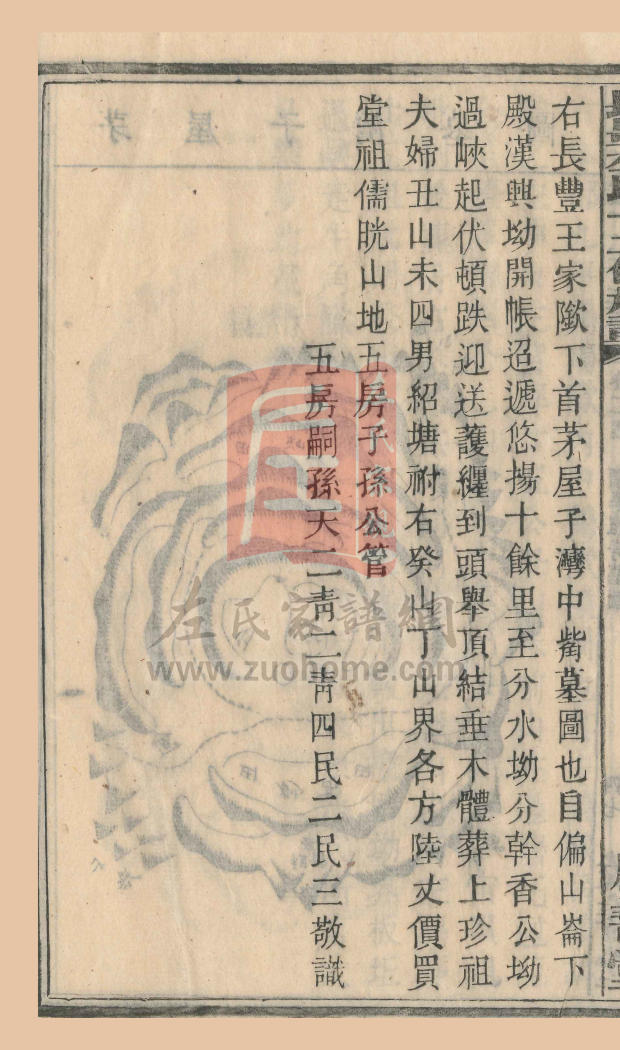 右長豐王家隞下首茅屋子灣中嘴墓圖也自偏山崙下
殿漢興坳開帳迢遞悠揚十餘里至分水坳分幹香公坳
過峽起伏頓跌迎送護纏到頭舉頂結垂木體葬上珍祖
夫婦丑山未四男紹塘祔右癸山丁山界各方陸丈價買
堂祖儒晄山地五房子孫公管
五房嗣孫天二青二青四民二民三敬識
左氏家譜網
www.zuohome.com